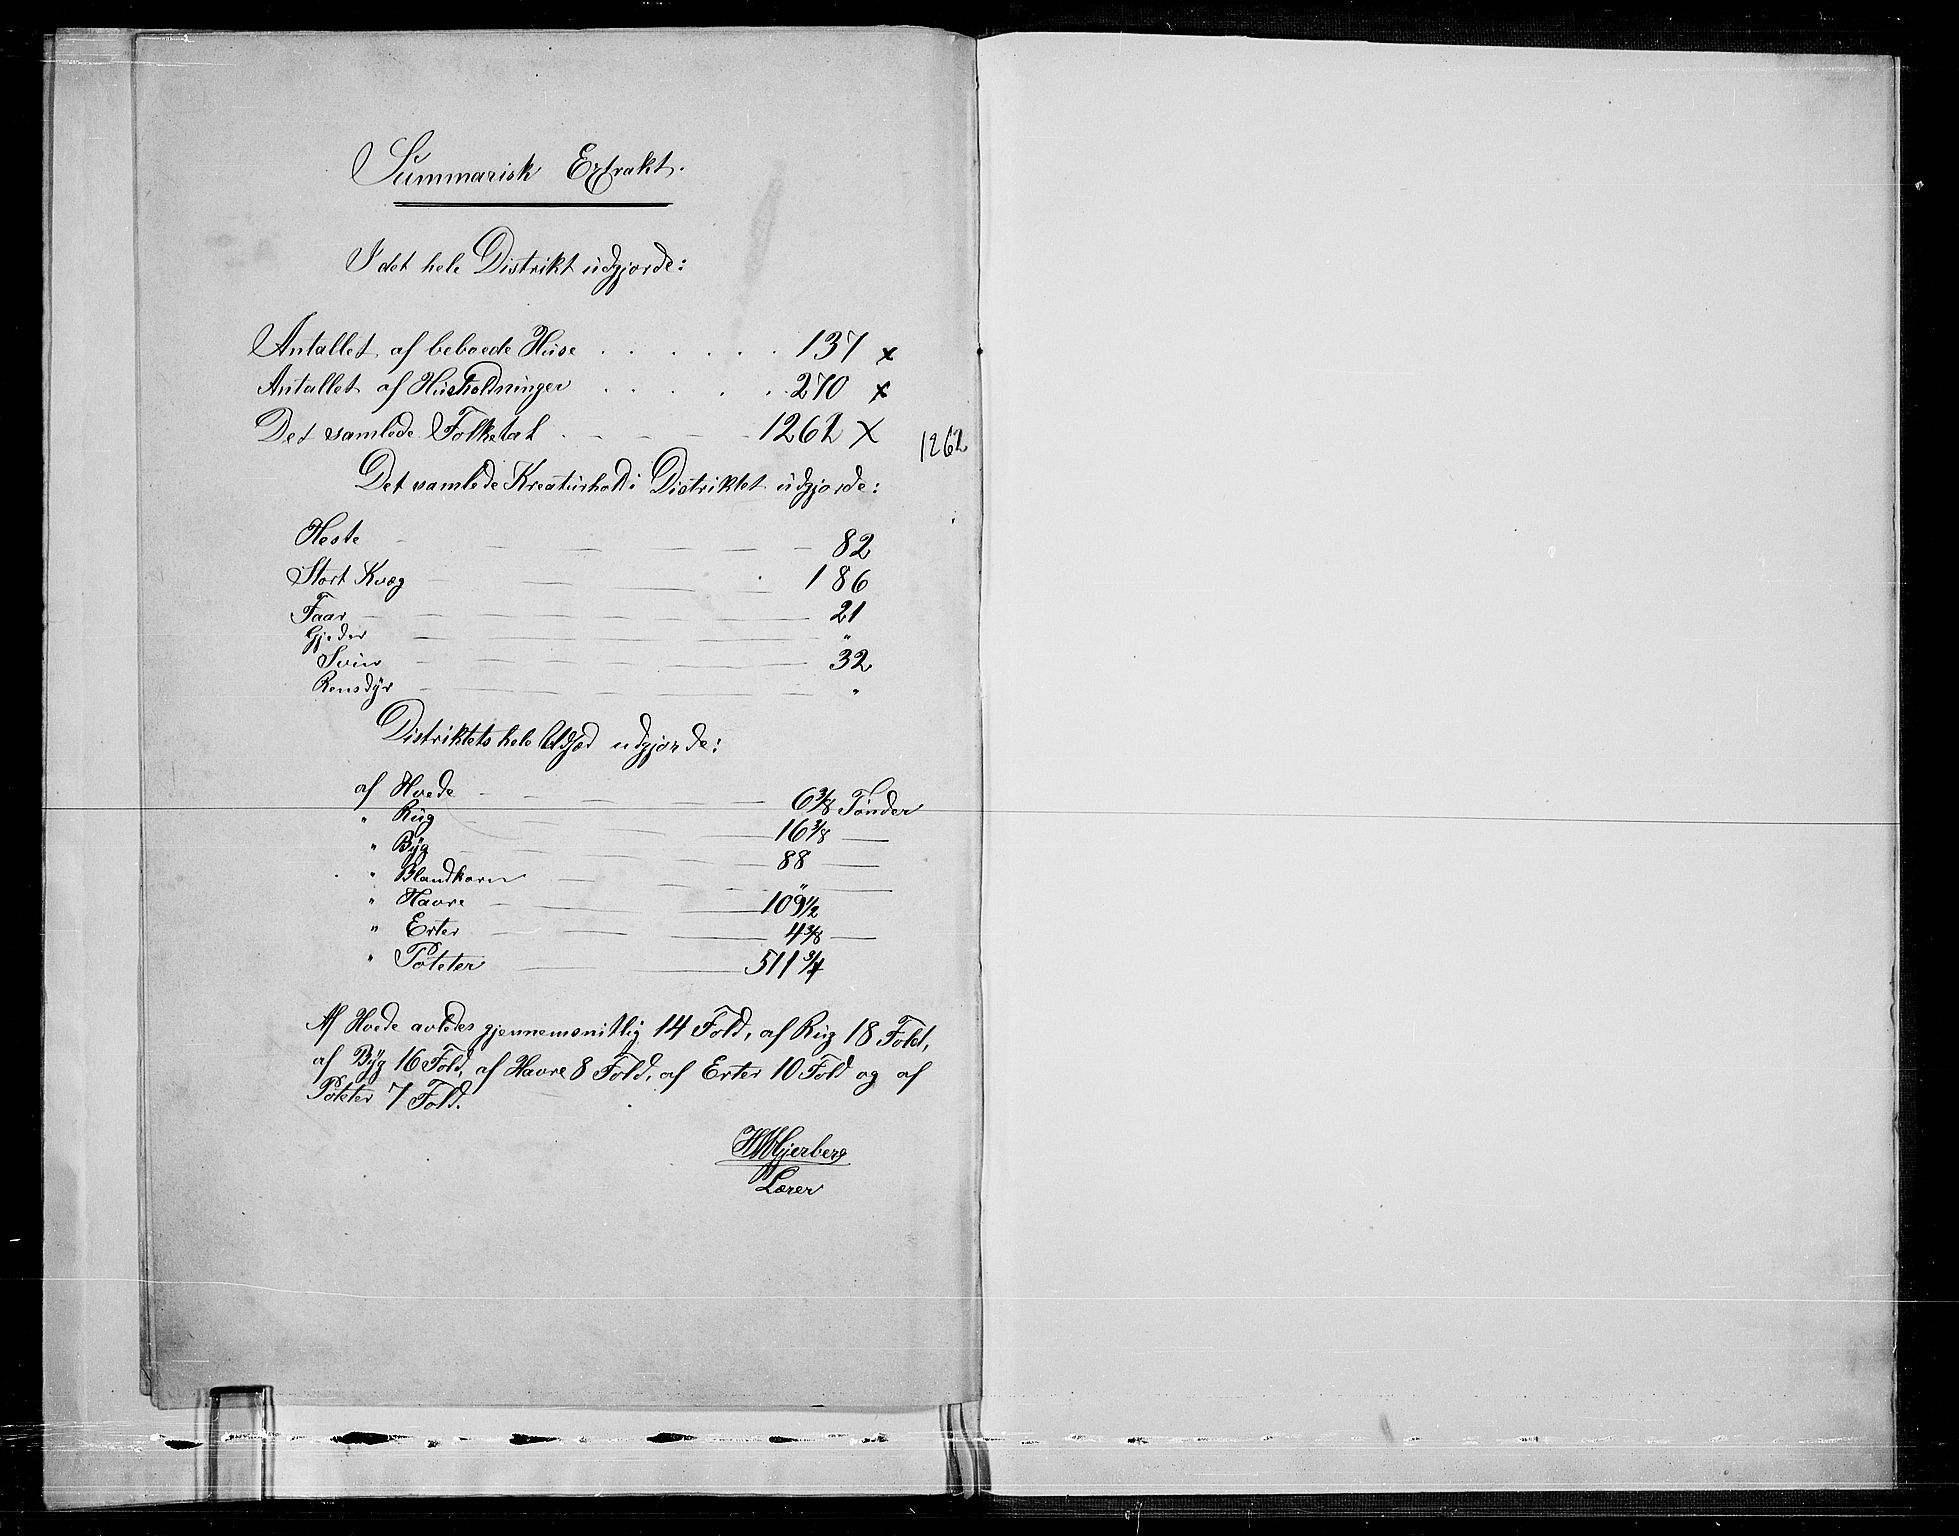 Summarisk Extrakt.
I det hele Distrikt udgjorde:
Antallet af beboede Huse . . . . . . 137 x
Antallet af Husholdninger . . . . . 270 x
Det samlede Folketal . - - - - 1262 x 1262
Det samlede Kreaturhold i Distriktet udgjorde:
Heste 82
Stort Kvæg 186
Faar 21
Gjeder "
Svin 32
Rensdyr "
Distriktets hele Udsæd udgjorde:
af Hvede 6 3/8 Tønder
" Rug 16 3/8 —
" Byg 88 —
" Blandkorn " —
" Havre 109 1/2
" Erter 4 3/8 —
" Poteter 511 3/4
Af Hvede avledes gjennemsnitlig 14 Fold, af Rug 18 Fold,
af Byg 16 Fold, af Havre 8 Fold, af Erter 10 Fold og af
Poteter 7 Fold.
Lærer